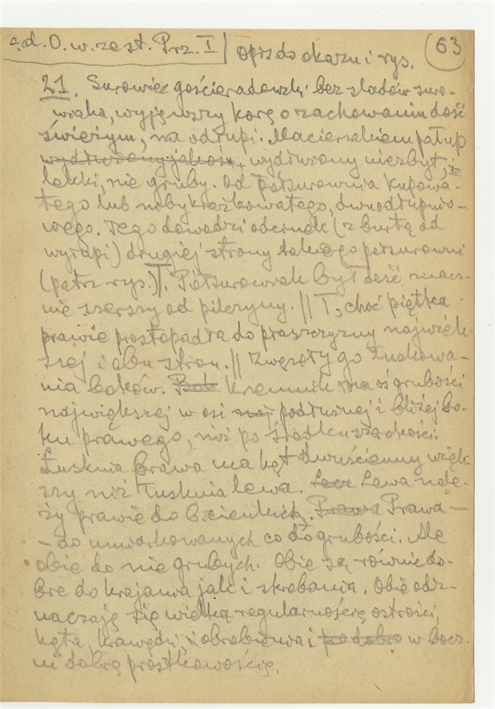 c.d. O. w. zest. Prz. I / opis do okazu i rys. (63)
21. Surowiec gościeradowski bez śladów suro-
wiaka, wyjąwszy korę o zachowaniu dość
świeżym, na odłupi. Macierzakiem płatup
wydłużony niezbyt, i
lekki, nie gruby. Od półsurownia kupowa-
tego lub niby krążkowatego, dwuodłupnio-
wego. Tego dowodzi odcinek (z burtą od
wyłapi) drugiej strony takiego półsurowni
(patrz rys.). Półsurowiak był dość znacz-
nie szerszy od pilczyny. // T, choć piętka
prawie prostopadła do płaszczyzny najwięk-
szej i obu stron. // Zwęzęły go łuskowa-
nia boków. Krzemień ma oś grubości
największej w osi podłużnej i bliżej bo-
ku prawego, niż po środku szerokości
Łusknia prawa ma kąt dwuścienny więk-
szy niż łusknia lewa. Lewa nale-
ży prawie do b. cienkich. Prawa –
– do umiarkowanych co do grubości. Ale
obie do nie grubych. Obie są równie do-
bre do krajania jak i skrobania. Obie odz-
naczają się wielką regularnością ostrości,
kąta krawędzi, i obrobienia i w bocz-
ni dobrą prostkowością.